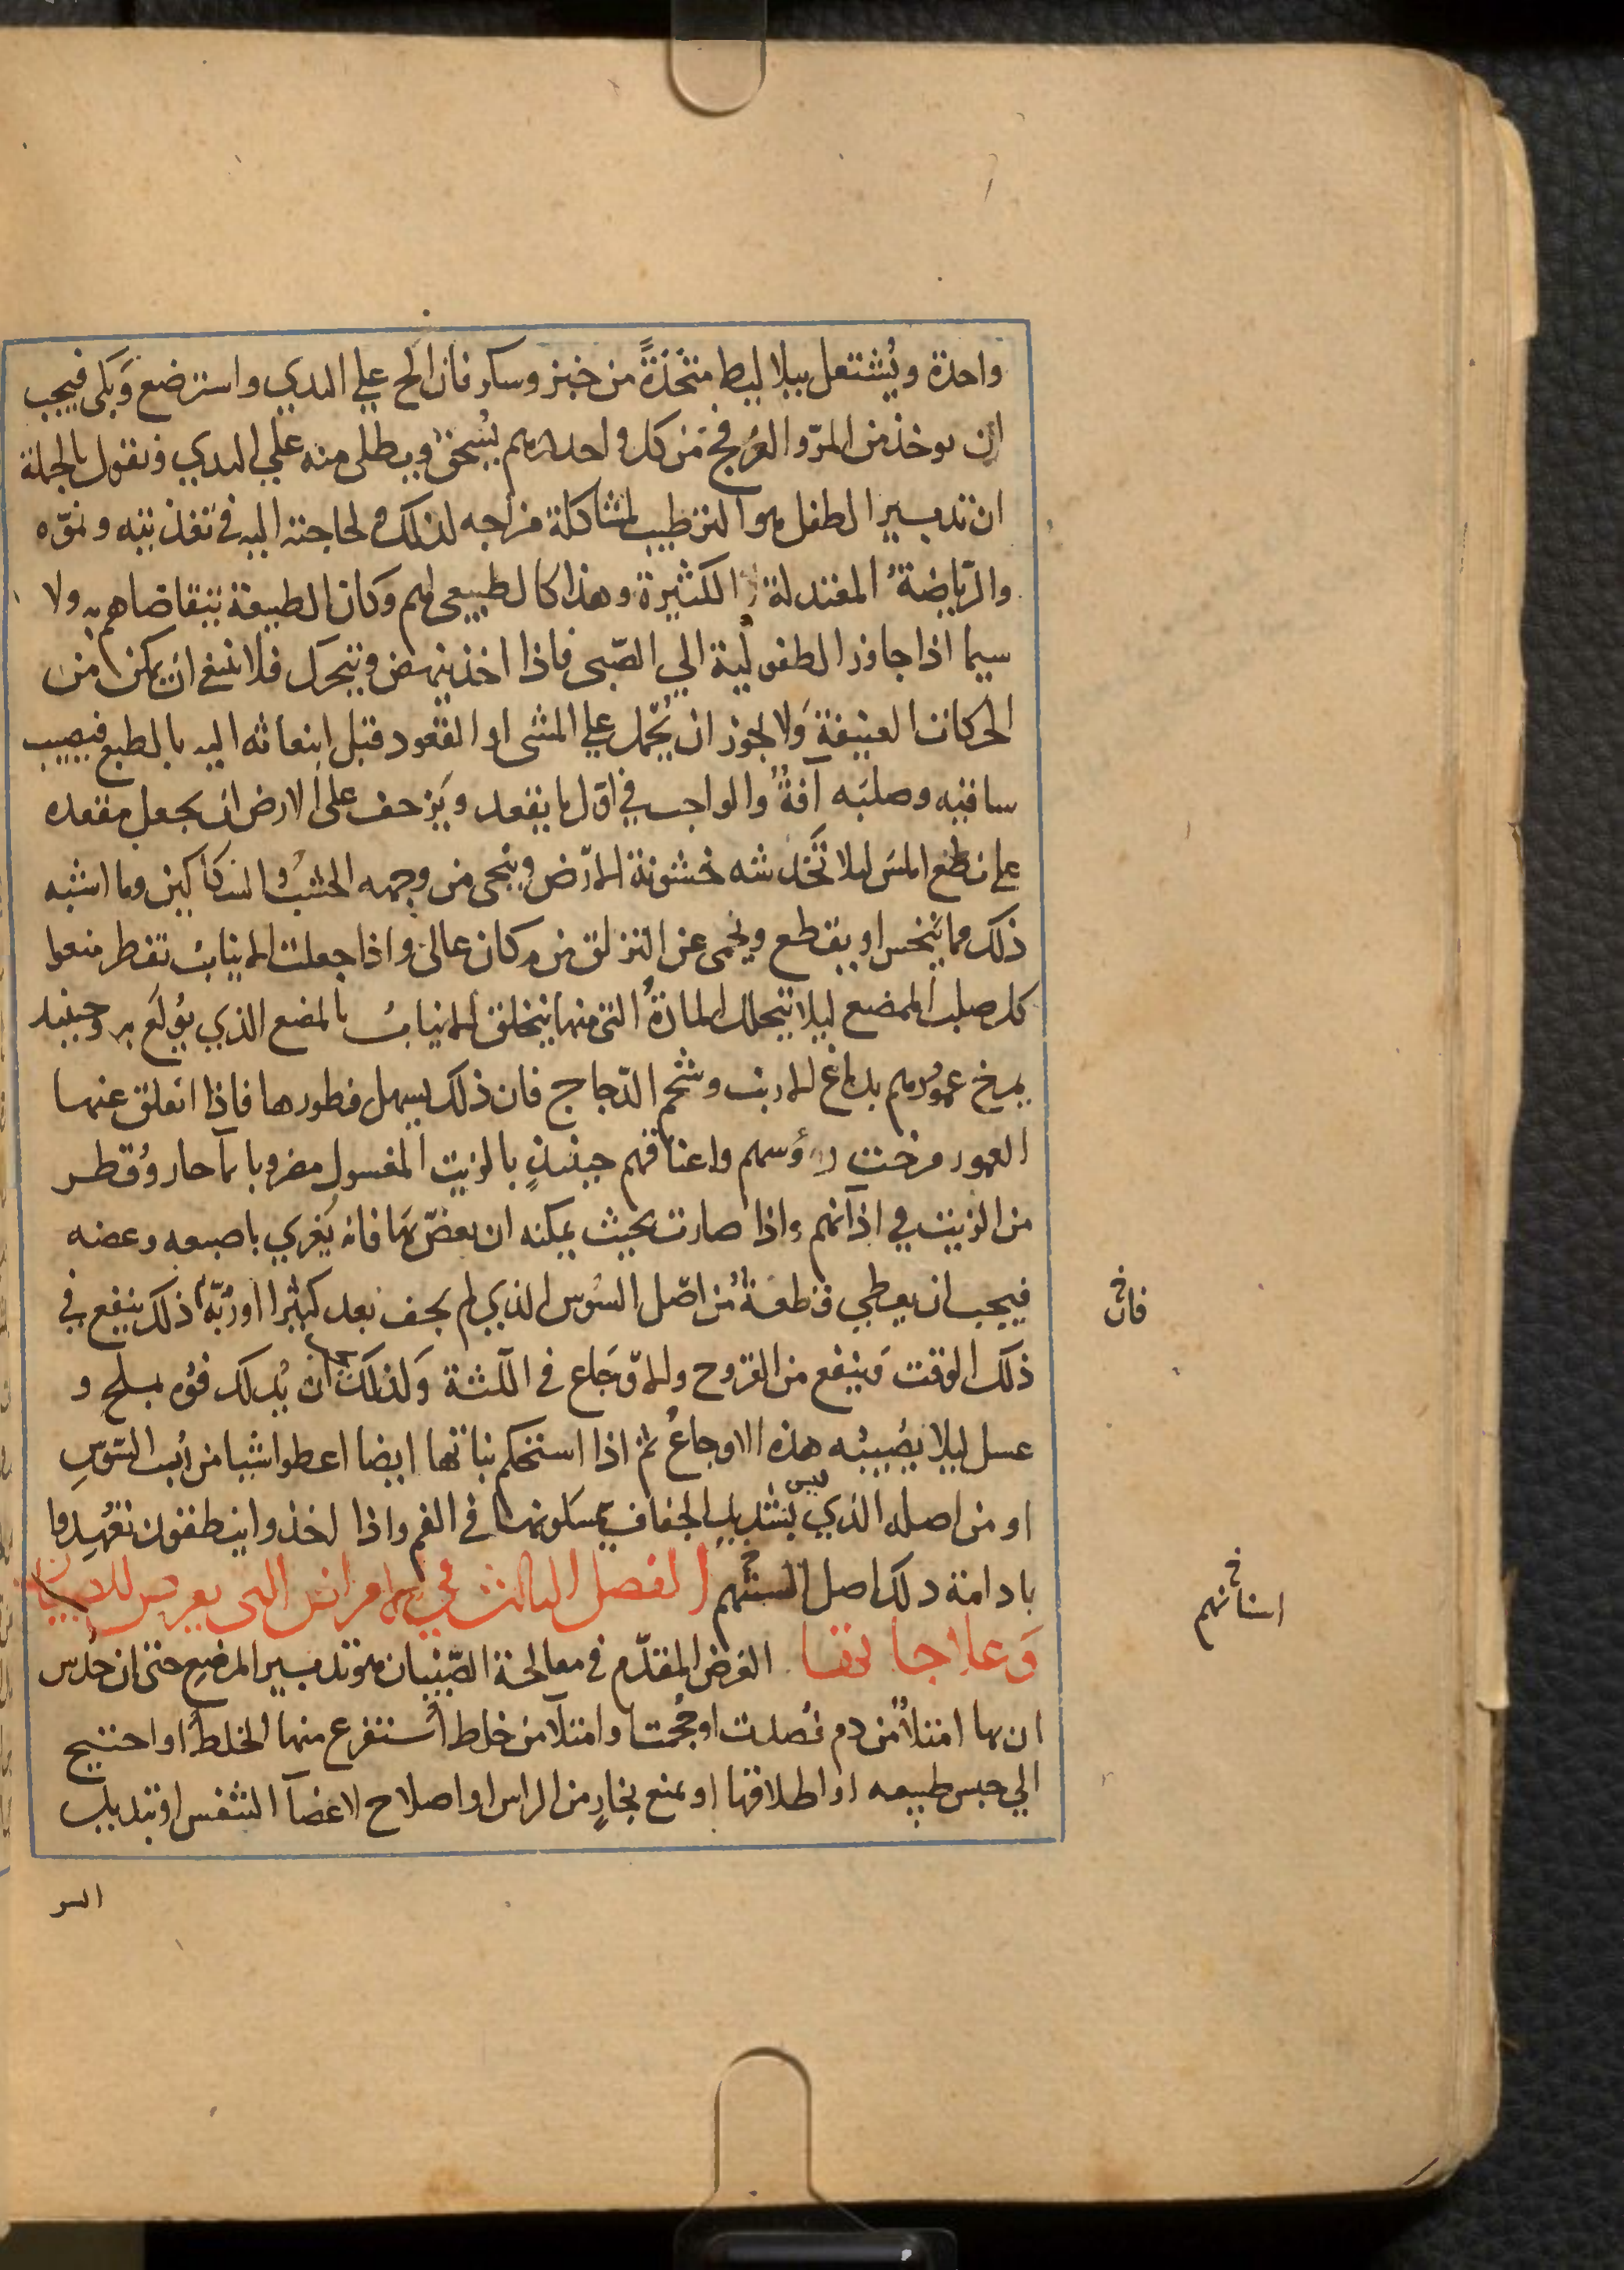 واحدة ويُشتغل ببلاليط متخذةً من خبز وسكر فان الح علي الثدي واسترضع وَبكى فيجب
ان يوخذ من المرّ والعُرفج من كل واحد درهم يُسحق ويطلى منه علي الثدي ونقول بالجملة
ان تدبير الطفل هو الترطيب لمشاكلة مزاجه لذلك ولحاجته اليه في تغذيته ونموّه
والرّياضةُ المعتدلة الكثيرة وهذا كالطبيعي لهم وَكان الطبيعة تتقاضاهم به ولا
سيما اذا جاوز الطفولية الي الصّبى فاذا اخذ ينهض ويتحرك فلا ينبغي ان يمكن من
الحركات العنيفة وَلا يجوز ان يُحمل علي المشى او القعود قبل انبعاثه اليه بالطبع فيصيب
ساقيه وصلبَه آفةٌ والواجب في اوّل ما يقعد ويَزحف على الارض ان يجعل مقعده
علي نطع املس ليلا تَخدشه خشونة الارض وينحى من وجهه الخشبُ والسكاكين وما اشبه
ذلك مما يَنخس او يقطع ويحمى عن التزلق من مكان عالٍ واذا جعلت الانياب تفطر منعوا
كل صلب الممضع ليلا تتحلل المادةُ التي منها يتخلق الانيابُ بالمضع الذي يُولَع به وحينيذ
يمرخ عمورهم بدماغ الارنب وشحم الدّجاج فان ذلك يسهل فطورها فاذا انغلق عنها
العمور مرخت رؤسهم واعناقهم حينئذٍ بالزيت المغسول مضروبا بمآ حار وقُطر
من الزيت في اذانهم واذا صارت بحيث يمكنه ان يعضّ بها فانه يَغري باصبعه وعضه
فيجب ان يعطي قطعةٌ من اصل السُوس الذي لم يجف بعد كثيرا او رُبّه ذلك ينفع في
فان خ
ذلك الوقت وَينفع من القروح والاوجَاع في اللثة وَلذلك يجب ان يُدلك فوُه بملحٍ و
عسل ليلا يصُيبُه هذه الاوجاعُ ثم اذا استحكم نباتها ايضا اعطوا شيا من رُب السّوسِ
او من اصله الذي ليس بشديد الجفاف يمسكونها في الفم واذا اخذوا ينطقون تعُهِدوا
بادامة دلك اصل السنتهم الفصل الثالث في الامراض التي يعرض للصبيان
اسنانهم خ
وَعلاجاتها الغرض المقدّم في معالجة الصّبيان هو تدبير المرضع حتى ان حُدس
ان بها امتلأً من دم فصدت او حجمت او امتلآ من خلط اُستفرغ منها الخلط او احتيج
الي حبس طبيعه او اطلاقها او منع بخارٍ من الراس او اصلاح لاعضآ التنفس او تبديل
السو